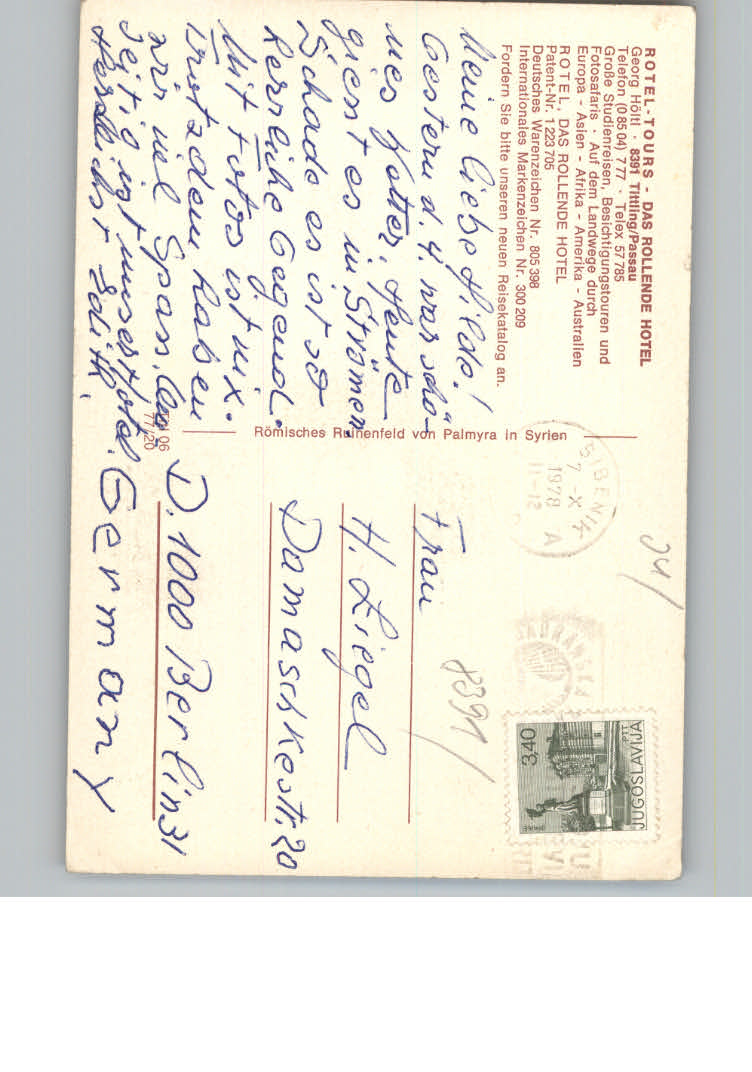 ROTEL-TOURS - DAS ROLLENDE HOTEL
Georg Höltl · 8391 Tittling/Passau
Telefon (0 85 04) 7 77 · Telex 57 785
Große Studienreisen, Besichtigungstouren und
Fotosafaris · Auf dem Landwege durch
Europa - Asien - Afrika - Amerika - Australien
ROTEL, DAS ROLLENDE HOTEL
Patent-Nr. 1 223 705
Deutsches Warenzeichen Nr. 805 398
Internationales Markenzeichen Nr. 300 209
Fordern Sie bitte unseren neuen Reisekatalog an.
Meine liebe Hilde!
Gestern d. 4. war schö-
nes Wetter, Heute
giest es in Strömen.
Schade es ist so
herrliche Gegend.
Mit Fotos ist nix.
Trotzdem haben
wir viel Spass,
seitig ist unser Hotel.
Herzlichst Edith.
Römisches Ruinenfeld von Palmyra in Syrien
06
77/20
ŠIBENIK
7 -X
1978 A
11-12
24/
8391/
JADRANSKA
JUGOSLAVIJA
PTT
3,40
Frau
H. Liegel
Damaschkestr, 20
D. 1000 Berlin 31
Germany